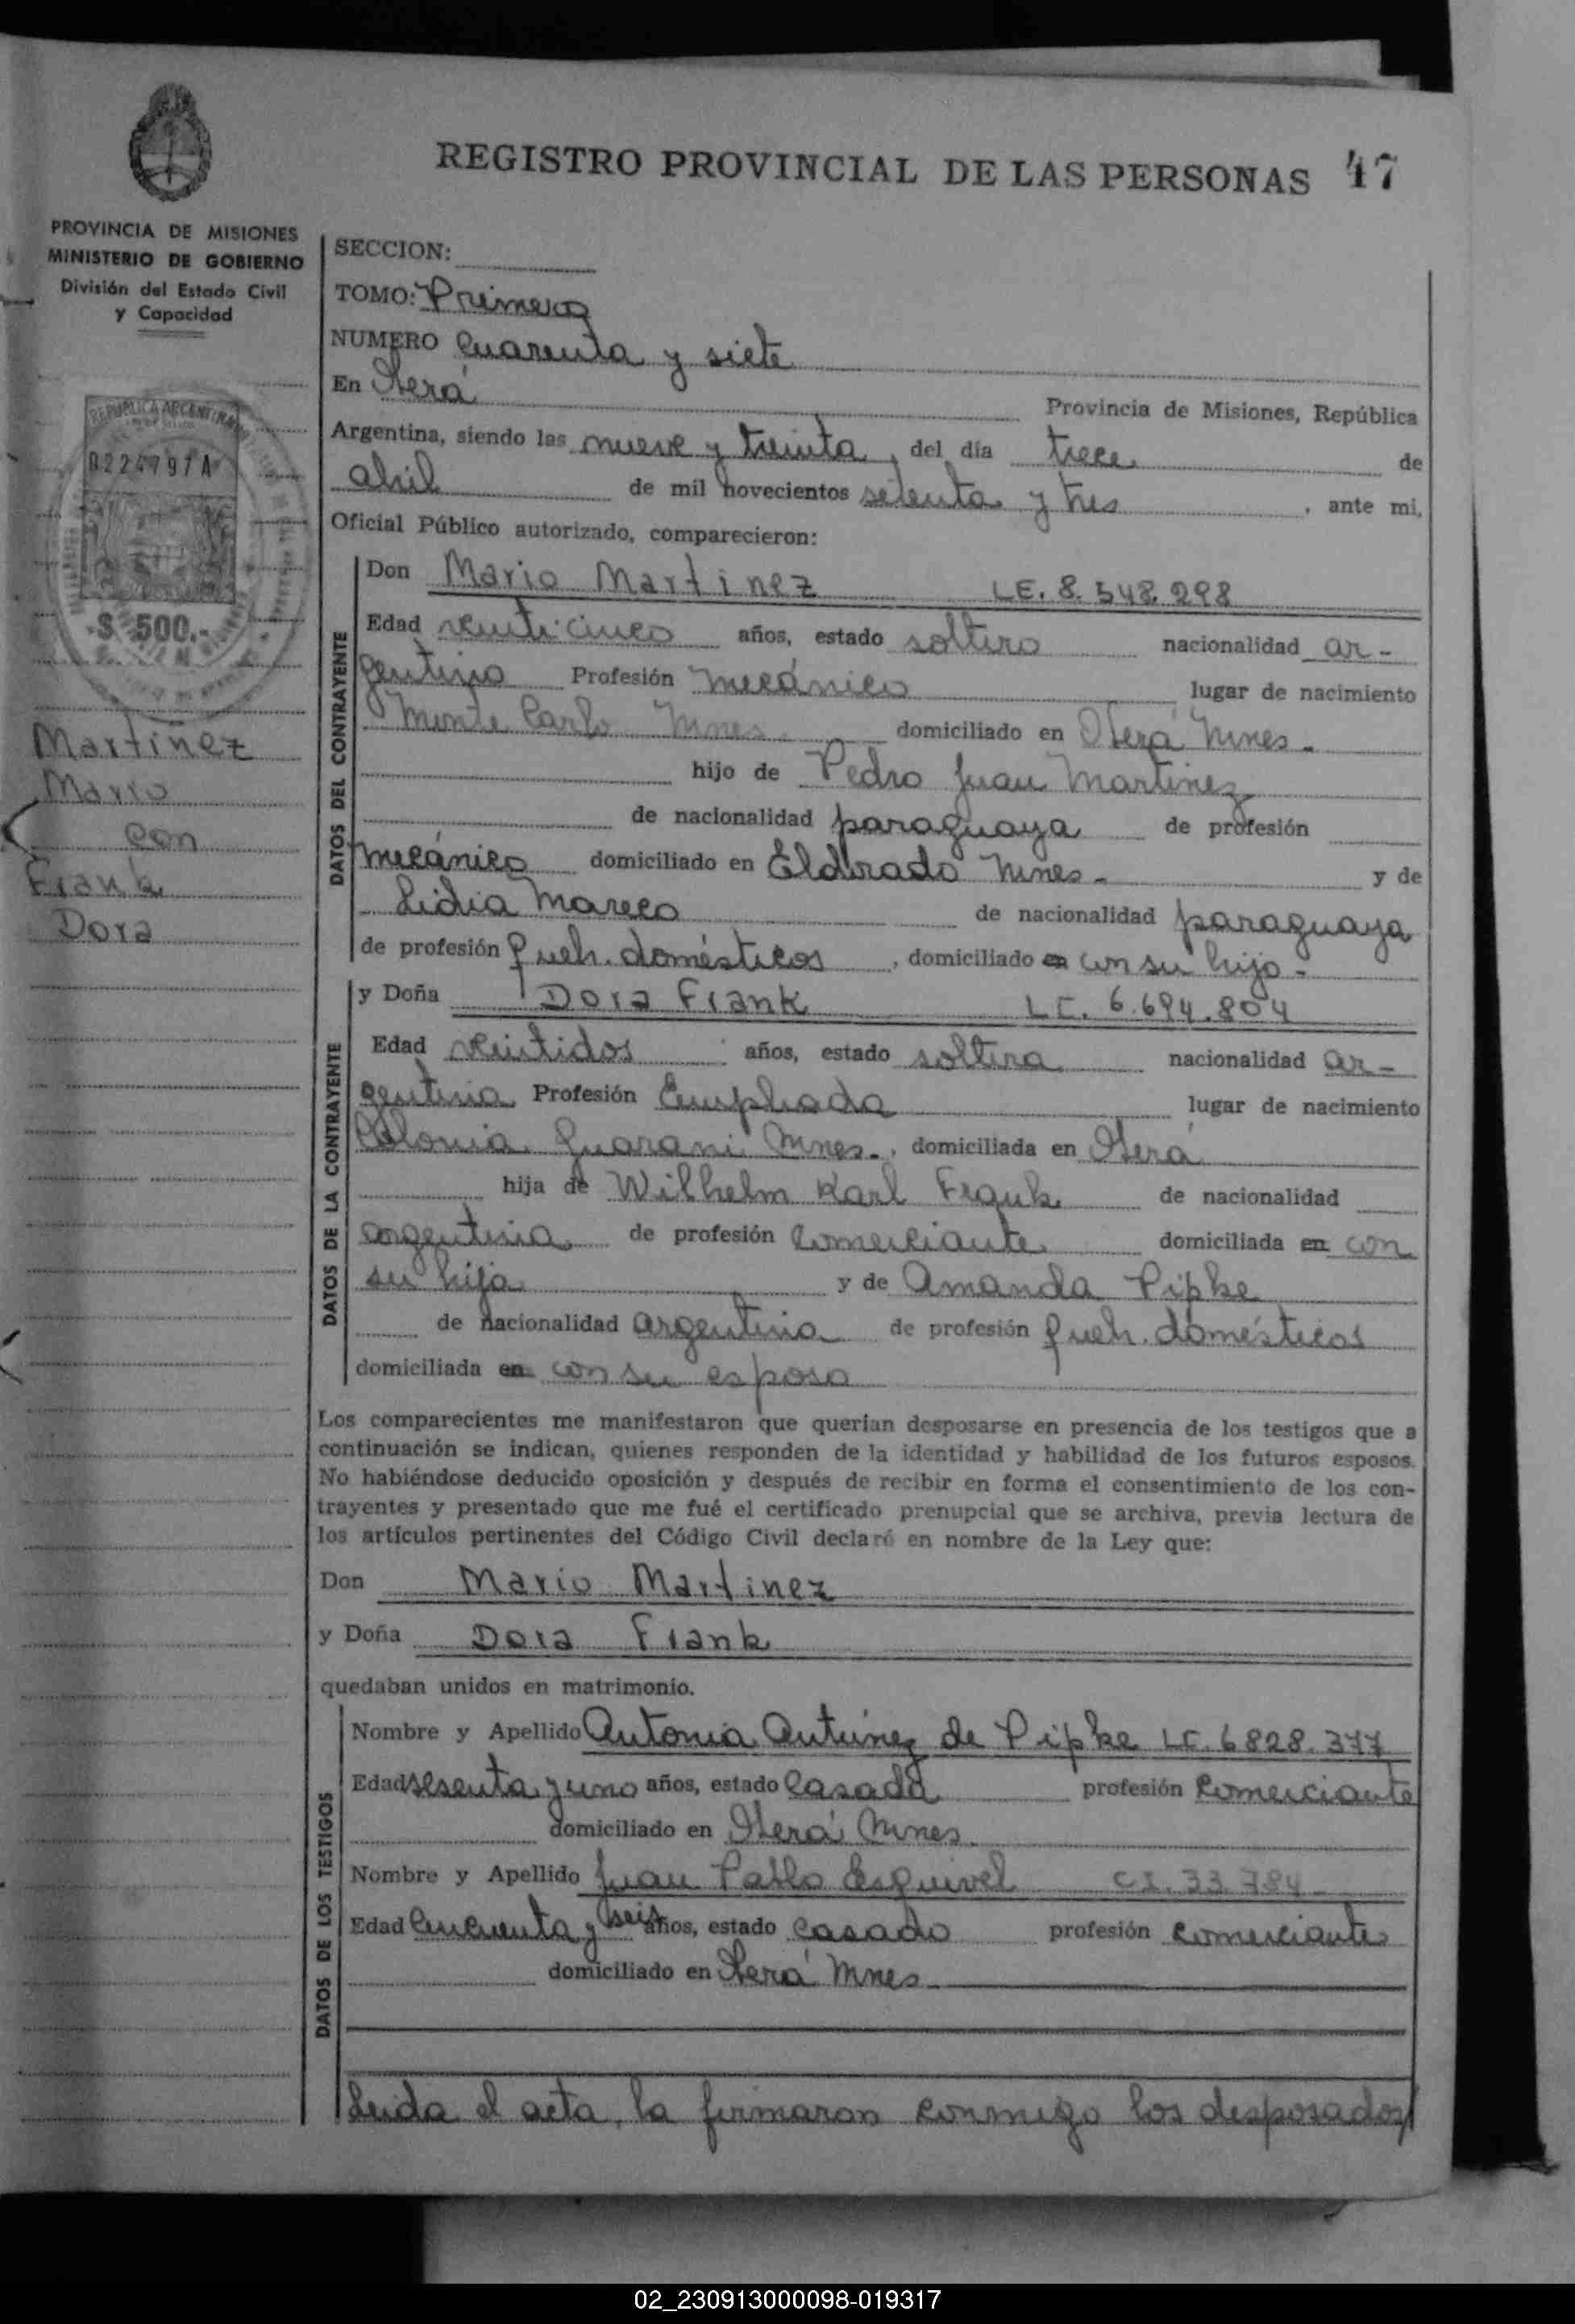 REGISTRO PROVINCIAL DE LAS PERSONAS 47
PROVINCIA DE MISIONES
MINISTERIO DE GOBIERNO
División del Estado Civil
y Capacidad
REPUBLICA ARGENTINA
0224797A
$ 500.-
Martinez
Mario
con
Frank
Dora
SECCION:
TOMO: Primero
NUMERO Cuarenta y siete
En Oberá Provincia de Misiones, República
Argentina, siendo las nueve y treinta, del día trece de
abril de mil novecientos setenta y tres, ante mi,
Oficial Público autorizado, comparecieron:
DATOS DEL CONTRAYENTE
Don Mario Martinez LE. 8.548.298
Edad veinticinco años, estado soltero nacionalidad ar-
gentino Profesión mecánico lugar de nacimiento
Monte Carlo Mnes. domiciliado en Oberá Mnes.
hijo de Pedro Juan Martinez
de nacionalidad paraguaya de profesión
mecánico domiciliado en Eldorado Mnes- y de
Lidia Mareco de nacionalidad paraguaya
de profesión queh. domésticos, domiciliado en con su hijo-
DATOS DE LA CONTRAYENTE
y Doña Dora Frank LC. 6.694.804
Edad veintidos años, estado soltera nacionalidad ar-
gentina Profesión Empleada lugar de nacimiento
Colonia Guarani Mnes., domiciliada en Oberá
hija de Wilhelm Karl Frank de nacionalidad
argentina de profesión comerciante domiciliada en con
su hija y de Amanda Pipke
de nacionalidad argentina de profesión queh. domésticos
domiciliada en con su esposo
Los comparecientes me manifestaron que querían desposarse en presencia de los testigos que a
continuación se indican, quienes responden de la identidad y habilidad de los futuros esposos.
No habiéndose deducido oposición y después de recibir en forma el consentimiento de los con-
trayentes y presentado que me fué el certificado prenupcial que se archiva, previa lectura de
los artículos pertinentes del Código Civil declaré en nombre de la Ley que:
Don Mario Martinez
y Doña Dora Frank
quedaban unidos en matrimonio.
DATOS DE LOS TESTIGOS
Nombre y Apellido Antonia Antúnez de Pipke LC. 6828.377
Edad sesenta y uno años, estado casada profesión comerciante
domiciliado en Oberá Mnes
Nombre y Apellido Juan Pablo Esquivel CI. 33.784
Edad cincuenta y seis años, estado casado profesión comerciante
domiciliado en Oberá Mnes
Leida el acta, la firmaron conmigo los desposados
02_230913000098-019317